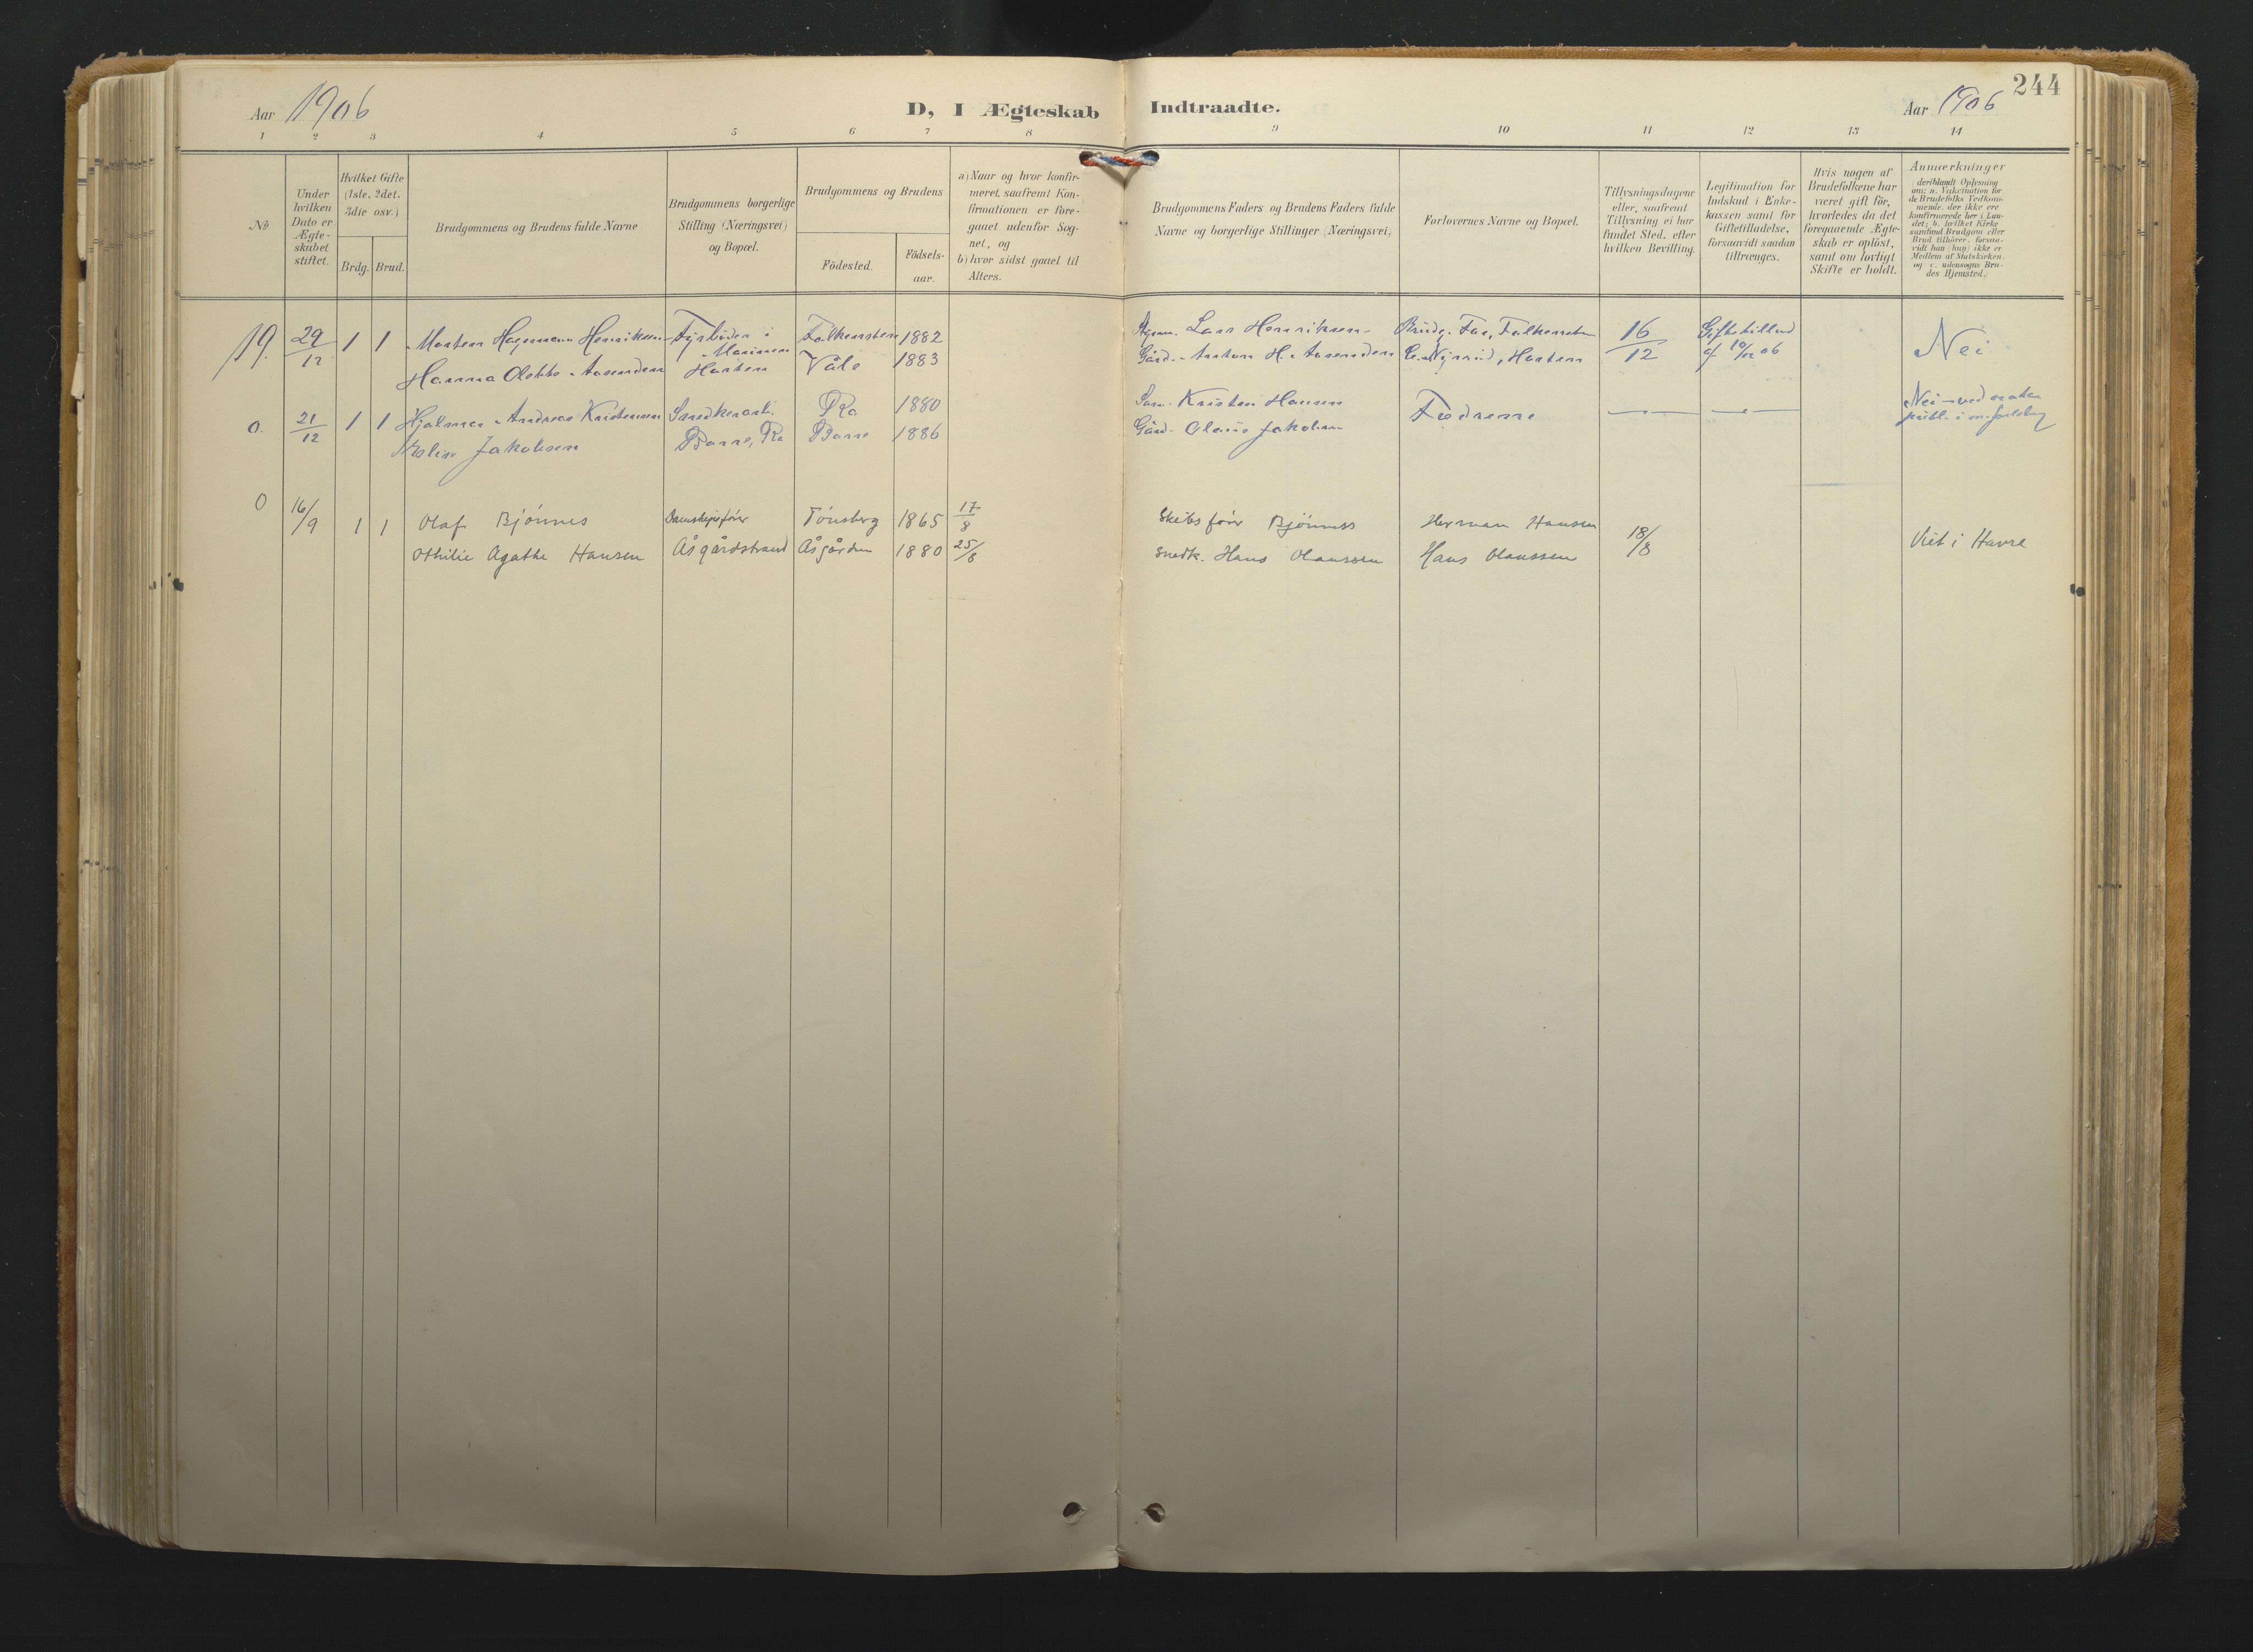 244
Aar 1906
D, I Ægteskab Indtraadte.
Aar 1906
1 2 3 4 5 6 7 8 9 10 11 12 13 14
No
Under
hvilken
Dato er
Ægte-
skabet
stiftet.
Hvilket Gifte
(1ste, 2det,
3die osv.)
Brdg. Brud.
Brudgommens og Brudens fulde Navne
Brudgommens borgerlige
Stilling (Næringsvei)
og Bopæl.
Brudgommens og Brudens
Födested.
Födsels-
aar.
a) Naar og hvor konfir-
meret, saafremt Kon-
firmationen er fore-
gaaet udenfor Sog-
net, og
b) hvor sidst gaaet til
Alters.
Brudgommens Faders og Brudens Faders fulde
Navne og borgerlige Stillinger (Næringsvei)
Forlovernes Navne og Bopæl.
Tillysningsdagene
eller, saafremt
Tillysning ei har
fundet Sted, efter
hvilken Bevilling.
Legitimation for
Indskud i Enke-
kassen samt for
Giftetilladelse,
forsaavidt saadan
tiltrænges.
Hvis nogen af
Brudefolkene har
været gift för,
hvorledes da det
foregaaende Ægte-
skab er oplöst,
samt om lovligt
Skifte er holdt.
Anmærkninger
deriblandt Oplysning
om: a. Vakcination for
de Brudefolks Vedkom-
mende, der ikke ere
konfirmerede her i Lan-
det; b. hvilket Kirke-
samfund Brudgom eller
Brud tilhörer, forsaa-
vidt han (hun) ikke er
Medlem af Statskirken.
og c. udensogns Bru-
des Hjemsted.
19. 29/12 1 1 Morten Hagemann Henriksen Fyrböder i Falkensten 1882 Lars Henriksen Brudg. Far, Falkensten 16/12 Giftetillad
Marinen
Hanna Olette Aasenden Horten Våle 1883 Gård. Anton H. Aasenden Horten af 10/12 06 Nei
0. 21/12 1 1 Hjalmar Andreas Kristensen Snedkerarb. Ra 1880 Kristen Hansen Fædrene Nei
Jakobsen Borre, Ra Borre 1886 Gård. Olaus Jakobsen
0 16/9 1 1 Olaf Bjönnes Dampskipsförer Tönsberg 1865 17/8 Skibsförer Bjönness Herman Hansen 18/8
Othilie Agathe Hansen Åsgårdstrand Åsgården 1880 25/8 Snedk. Hans Olaussen Hans Olaussen Viet i Havre